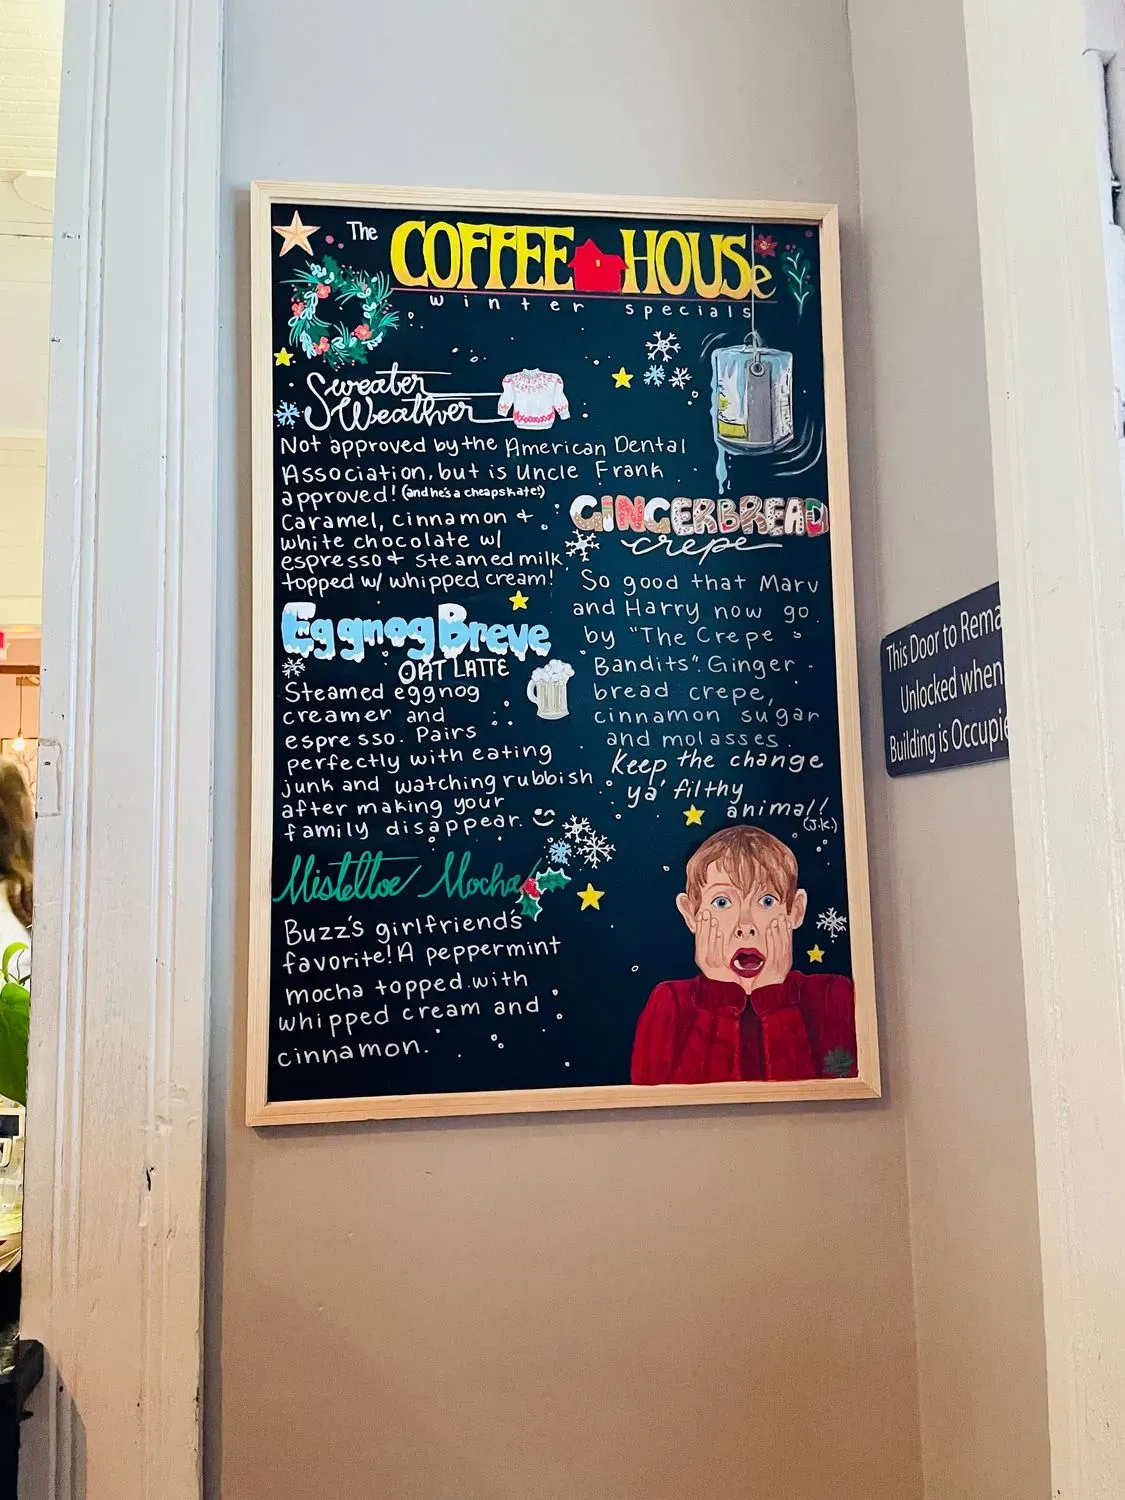 The COFFEE HOUSe
winter specials
Sweater
Weather
Not approved by the American Dental
Association, but is Uncle Frank
approved! (and he's a cheapskate!)
Caramel, cinnamon +
white chocolate w/
espresso + steamed milk
topped w/ whipped cream!
Eggnog Breve
OAT LATTE
Steamed eggnog
creamer and
espresso. Pairs
perfectly with eating
junk and watching rubbish
after making your
family disappear.
Misteltoe Mocha
Buzz's girlfriend's
favorite! A peppermint
mocha topped with
whipped cream and
cinnamon.
GINGERBREAD
crepe
So good that Marv
and Harry now go
by "The Crepe
Bandits". Ginger
bread crepe,
cinnamon sugar
and molasses.
Keep the change
ya' filthy
animal!
(J.K.)
This Door to Rema
Unlocked when
Building is Occupie